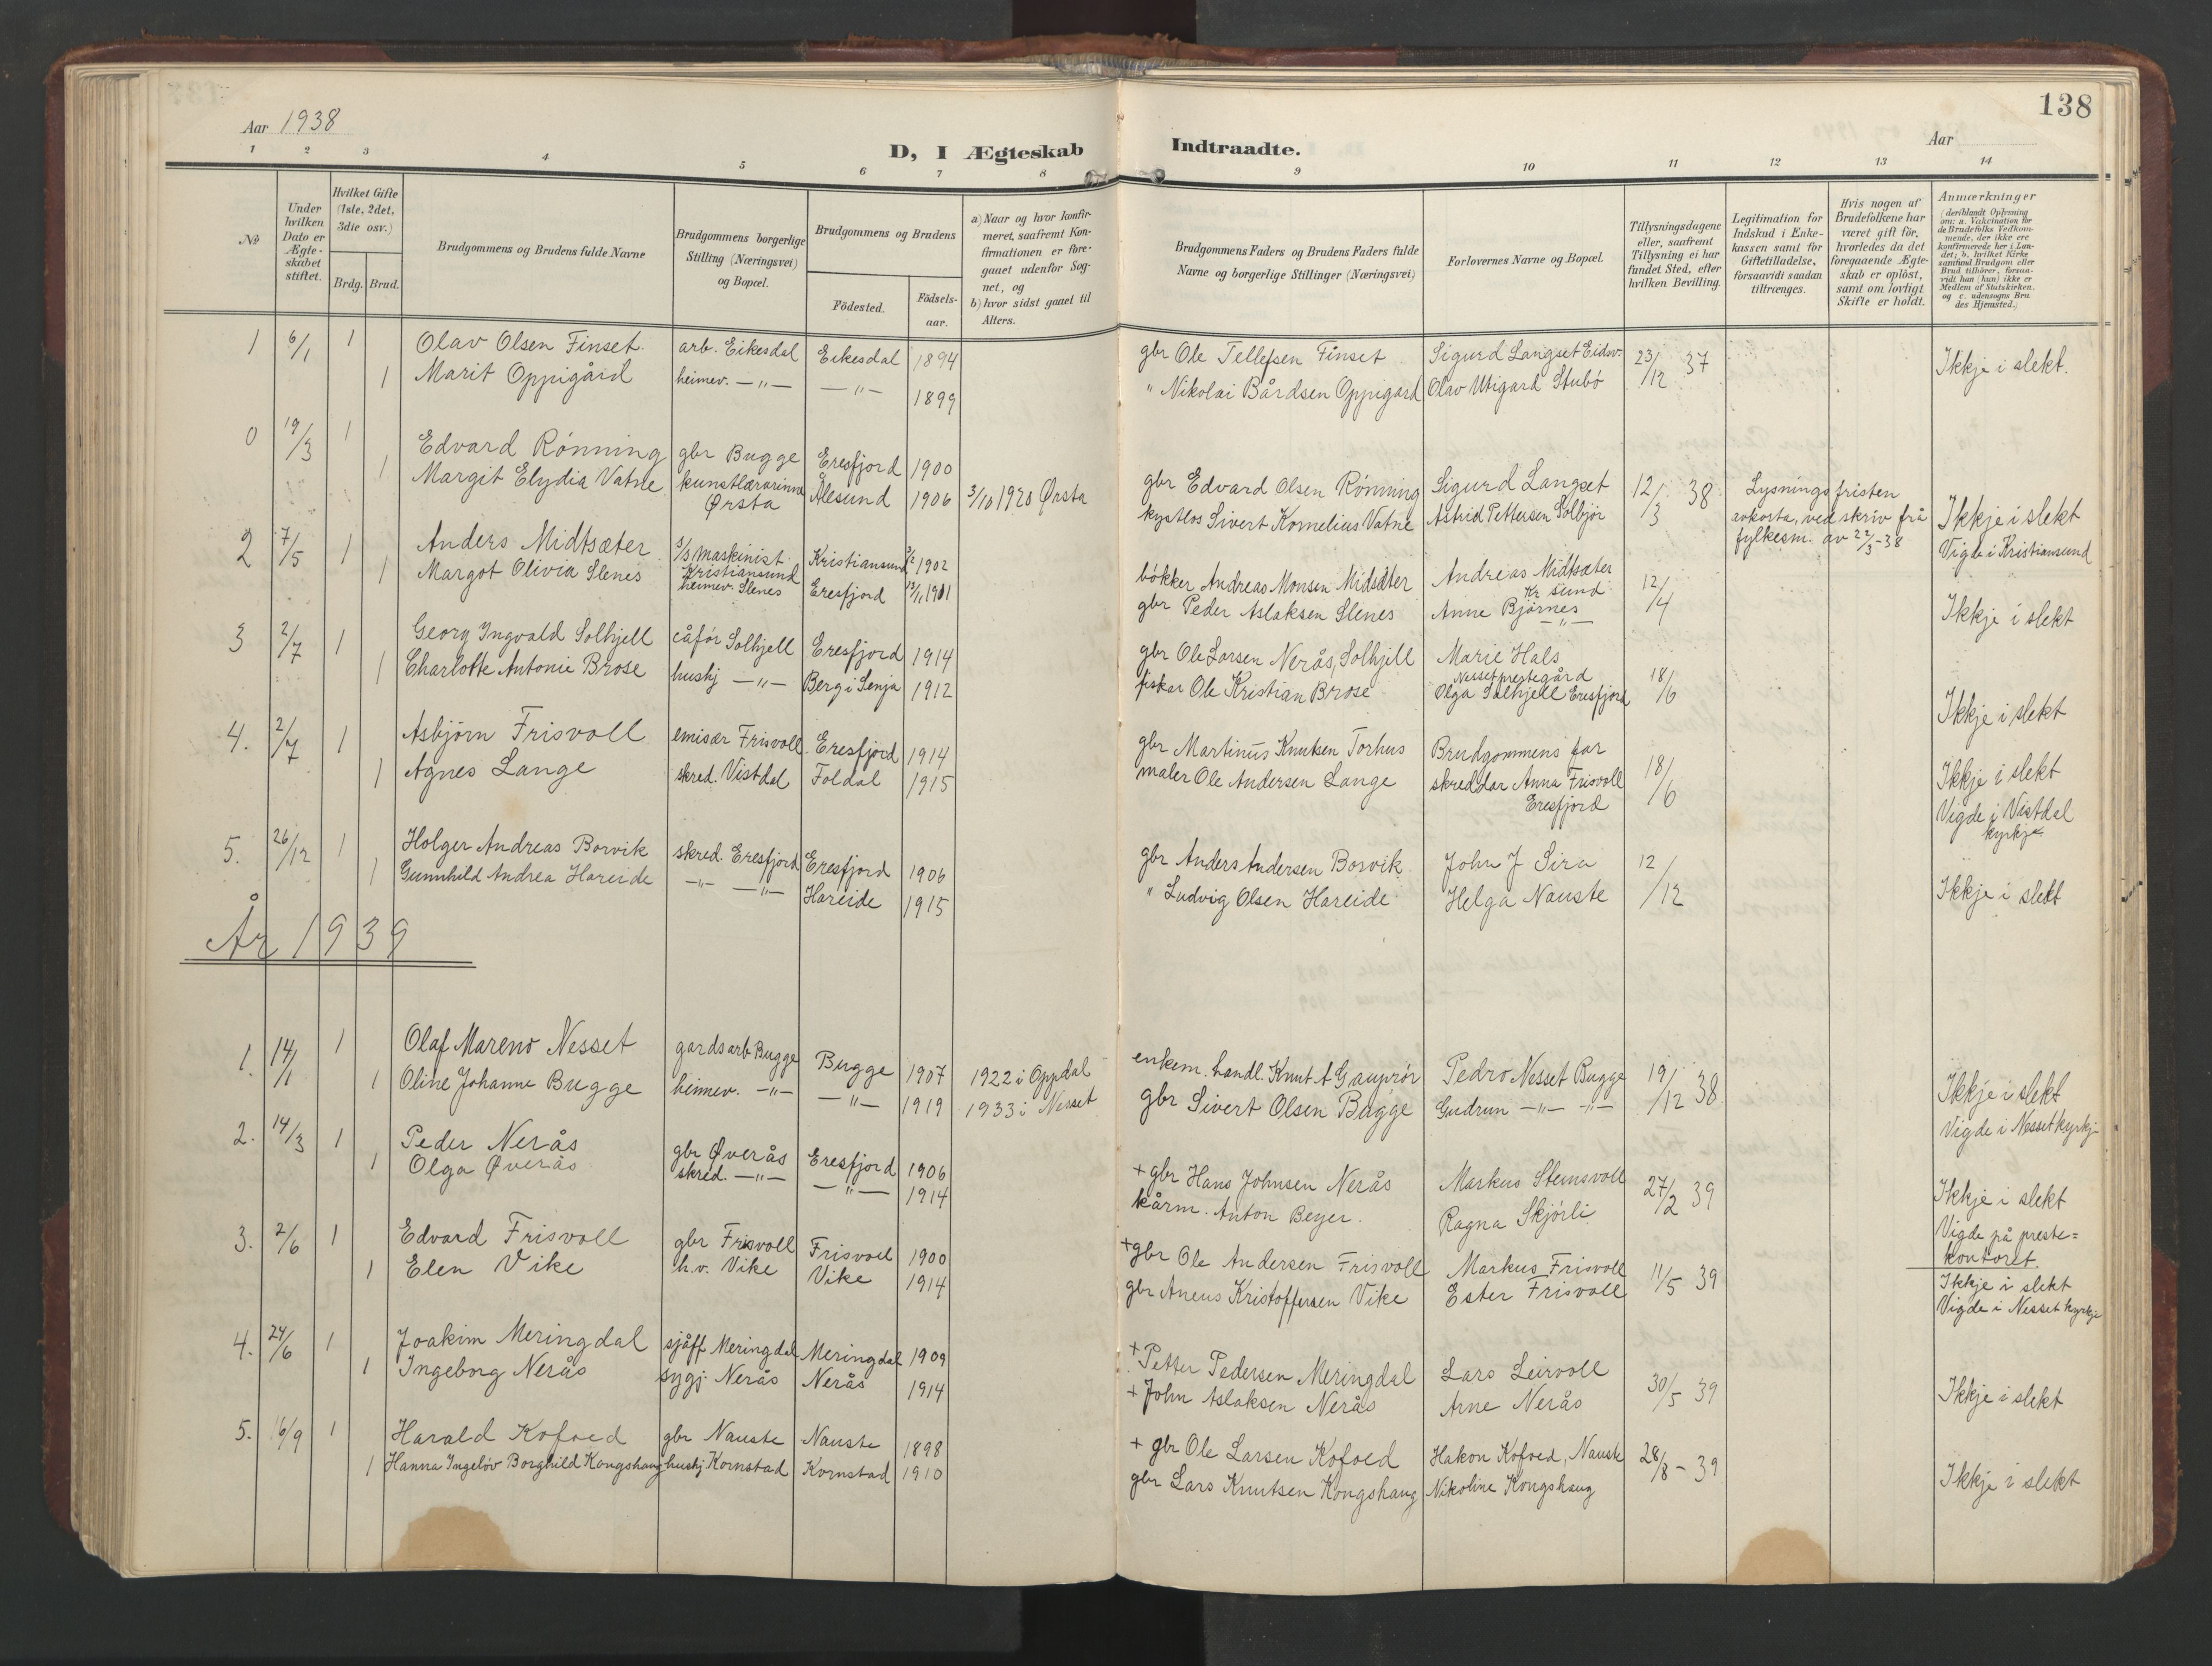 138
Aar 1938
Aar
D, I Ægteskab Indtraadte.
1 2 3 4 5 6 7 8 9 10 11 12 13 14
№
Under hvilken Dato er Ægteskabet stiftet.
Hvilket Gifte (1ste, 2det, 3die osv.)
Brdg. Brud.
Brudgommens og Brudens fulde Navne
Brudgommens borgerlige Stilling (Næringsvei) og Bopæl.
Brudgommens og Brudens
Födested.
Födselsaar.
a) Naar og hvor konfirmeret, saafremt Konfirmationen er foregaaet udenfor Sognet, og
b) hvor sidst gaaet til Alters.
Brudgommens Faders og Brudens Faders fulde Navne og borgerlige Stillinger (Næringsvei)
Forlovernes Navne og Bopæl.
Tillysningsdagene eller, saafremt Tillysning ei har fundet Sted, efter hvilken Bevilling.
Legitimation for Indskud i Enkekassen samt for Giftetilladelse, forsaavidt saadan tiltrænges.
Hvis nogen af Brudefolkene har været gift för, hvorledes da det foregaaende Ægteskab er oplöst, samt om lovligt Skifte er holdt.
Anmærkninger
(deriblandt Oplysning om: a. Vakcination for de Brudefolks Vedkommende, der ikke ere konfirmerede her i Landet; b. hvilket Kirkesamfund Brudgom eller Brud tilhörer, forsaavidt han (hun) ikke er Medlem af Statskirken, og c. udensogns Brudes Hjemsted.)
1 6/1 1 Olav Olsen Finset arb. Eikesdal Eikesdal 1894 gbr Ole Tellefsen Finset Sigurd Langset Eidsv. 23/12 37 Ikkje i slekt.
1 Marit Oppigård heimev. —„— —„— 1899 „ Nikolai Bårdsen Oppigard Olav Utigard Stubö
0 19/3 1 Edvard Rönning gbr Bugge Eresfjord 1900 gbr Edvard Olsen Rönning Sigurd Langset 12/3 38 Lysningsfristen avkorta, ved skriv frå fylkesm. av 22/3-38 Ikkje i slekt
1 Margit Elydia Vatne kunstlærarinne Ørsta Ålesund 1906 3/10 1920 Ørsta Sivert Kornelius Vatne Astrid Pettersen Solbjör Vigde i Kristiansund
2 7/5 1 Anders Midtsæter s/s maskinist Kristiansund Kristiansund 1902 bökker Andreas Monsen Midsæter Andreas Midtsæter Kr sund 12/4 Ikkje i slekt
1 Margot Olivia Slenes heimev. Slenes Eresfjord 1911 gbr Peder Aslaksen Slenes Anne Bjørnes —„—
3 2/7 1 Georg Ingvald Solhjell Solhjell Eresfjord 1914 gbr Ole Larsen Nerås, Solhjell Marie Hals Nesset prestegård 18/6 Ikkje i slekt
1 Charlotte Antonie Brose hushj —„— Berg i Senja 1912 fiskar Ole Kristian Brose Olga Solhjell Eresfjord
4. 2/7 1 Asbjörn Frisvoll emisær Frisvoll Eresfjord 1914 gbr Martinus Knutsen Torhus Brudgommens far 18/6 Ikkje i slekt
1 Agnes Lange skred. Vistdal Foldal 1915 maler Ole Andersen Lange skreddar Anna Frisvoll Eresfjord Vigde i Vistdal kyrkje
5. 26/12 1 Holger Andreas Borvik skred. Eresfjord Eresfjord 1906 gbr Anders Andersen Borvik John J Sira 12/12 Ikkje i slekt
1 Gunnhild Andrea Hareide —„— —„— Hareide 1915 „ Ludvig Olsen Hareide Helga Nauste
År 1939
1. 14/1 1 Olaf Mareno Nesset gardsarb Bugge Bugge 1907 1922 i Oppdal enkem. handl. Knut A Gauprör Pedro Nesset Bugge 19/12 38 Ikkje i slekt
1 Oline Johanne Bugge heimev. —„— —„— 1919 1933 i Nesset gbr Sivert Olsen Bugge Gudrun —„— —„— Vigde i Nesset kyrkj
2. 14/3 1 Peder Nerås gbr Øverås Eresfjord 1906 + gbr Hans Johnsen Nerås Markus Steinsvoll 27/2 39 Ikkje i slekt
1 Olga Øverås skred. —„— —„— 1914 kårm. Anton Beyer. Ragna Skjörli Vigde på prestekontoret.
3. 2/6 1 Edvard Frisvoll gbr Frisvoll Frisvoll 1900 + gbr Ole Andersen Frisvoll Markus Frisvoll 11/5 39 Ikkje i slekt
1 Elen Vike h.v. Vike Vike 1914 gbr Aneus Kristoffersen Vike Ester Frisvoll Vigde i Nesset kyrkje
4. 24/6 1 Joakim Meringdal sjåff Meringdal Meringdal 1909 + Petter Pedersen Meringdal Lars Leirvoll 30/5 39 Ikkje i slekt
1 Ingeborg Nerås sygj. Nerås Nerås 1914 + John Aslaksen Nerås Arne Nerås
5. 16/9 1 Harald Kofoed gbr Nauste Nauste 1898 + gbr Ole Larsen Kofoed Hakon Kofoed, Nauste 28/8 - 39 Ikkje i slekt
1 Hanna Ingelöv Borghild Kongshaug hushj Kornstad Kornstad 1910 gbr Lars Knutsen Kongshaug Nikoline Kongshaug